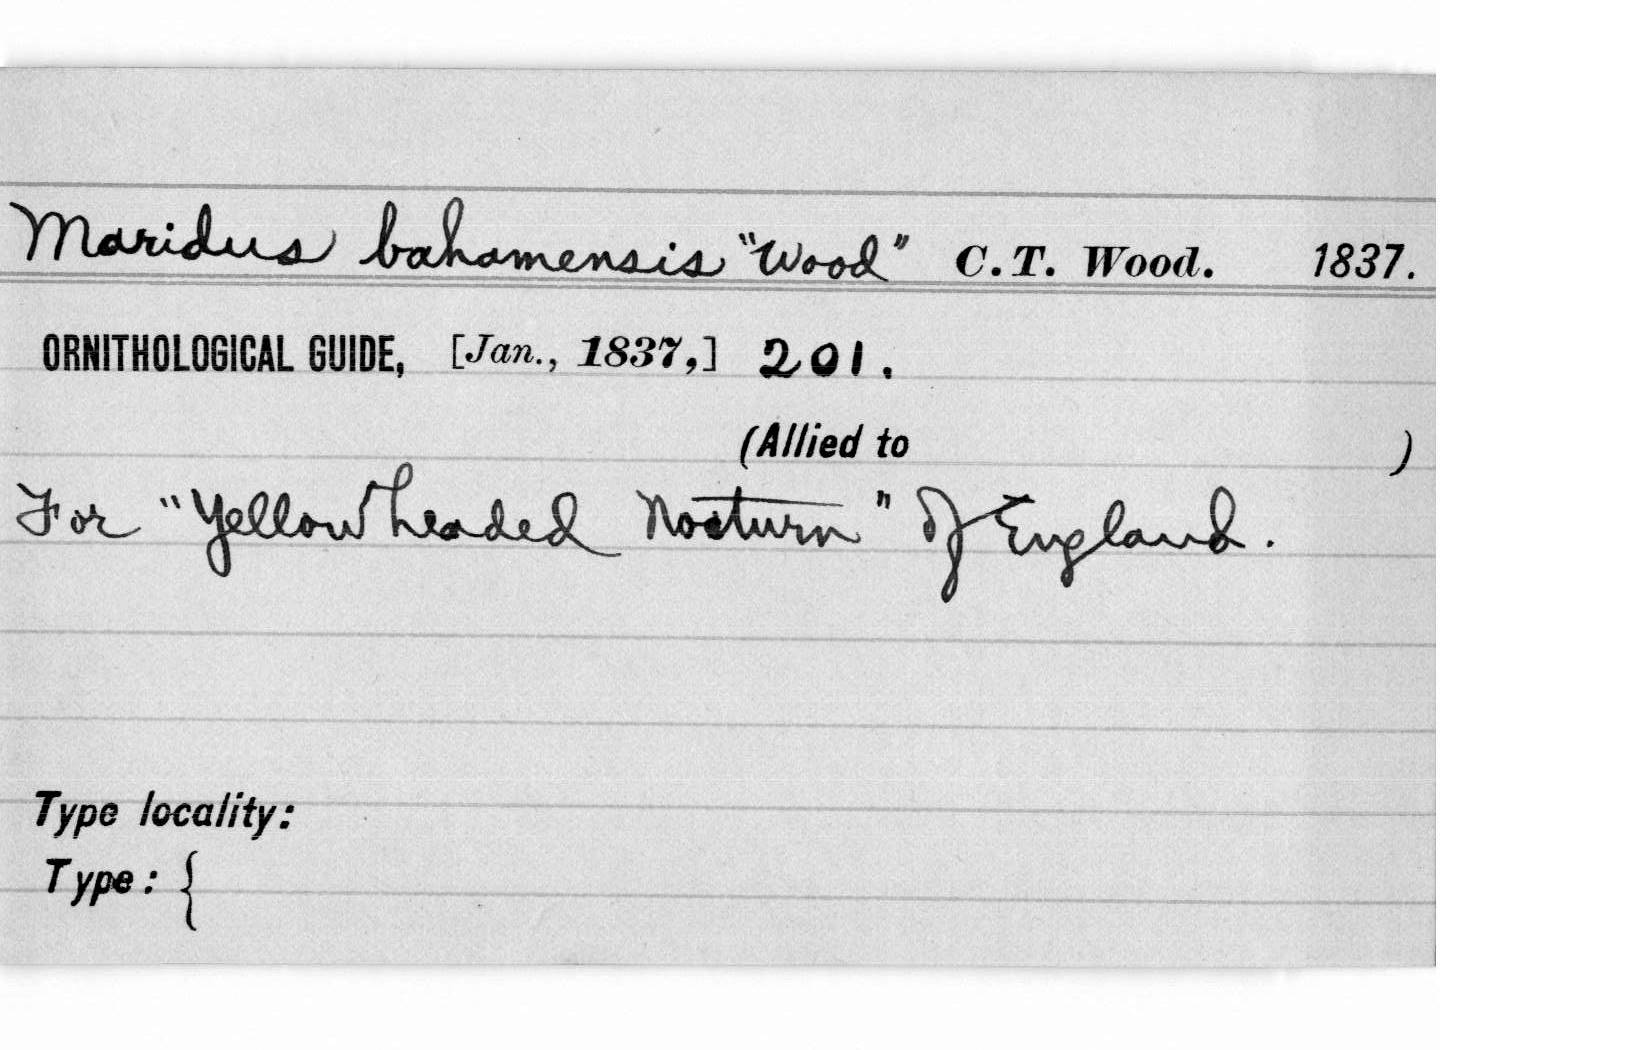 Maridus bahamensis "Wood" C. T. Wood. 1837.
ORNITHOLOGICAL GUIDE, [Jan., 1837,] 201.
(Allied to )
For "Yellowheaded Nocturn" of England.
Type locality:
Type: {